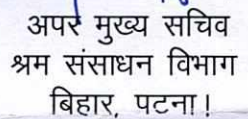 अपर मुख्य सचिव
श्रम संसाधन विभाग
बिहार, पटना!